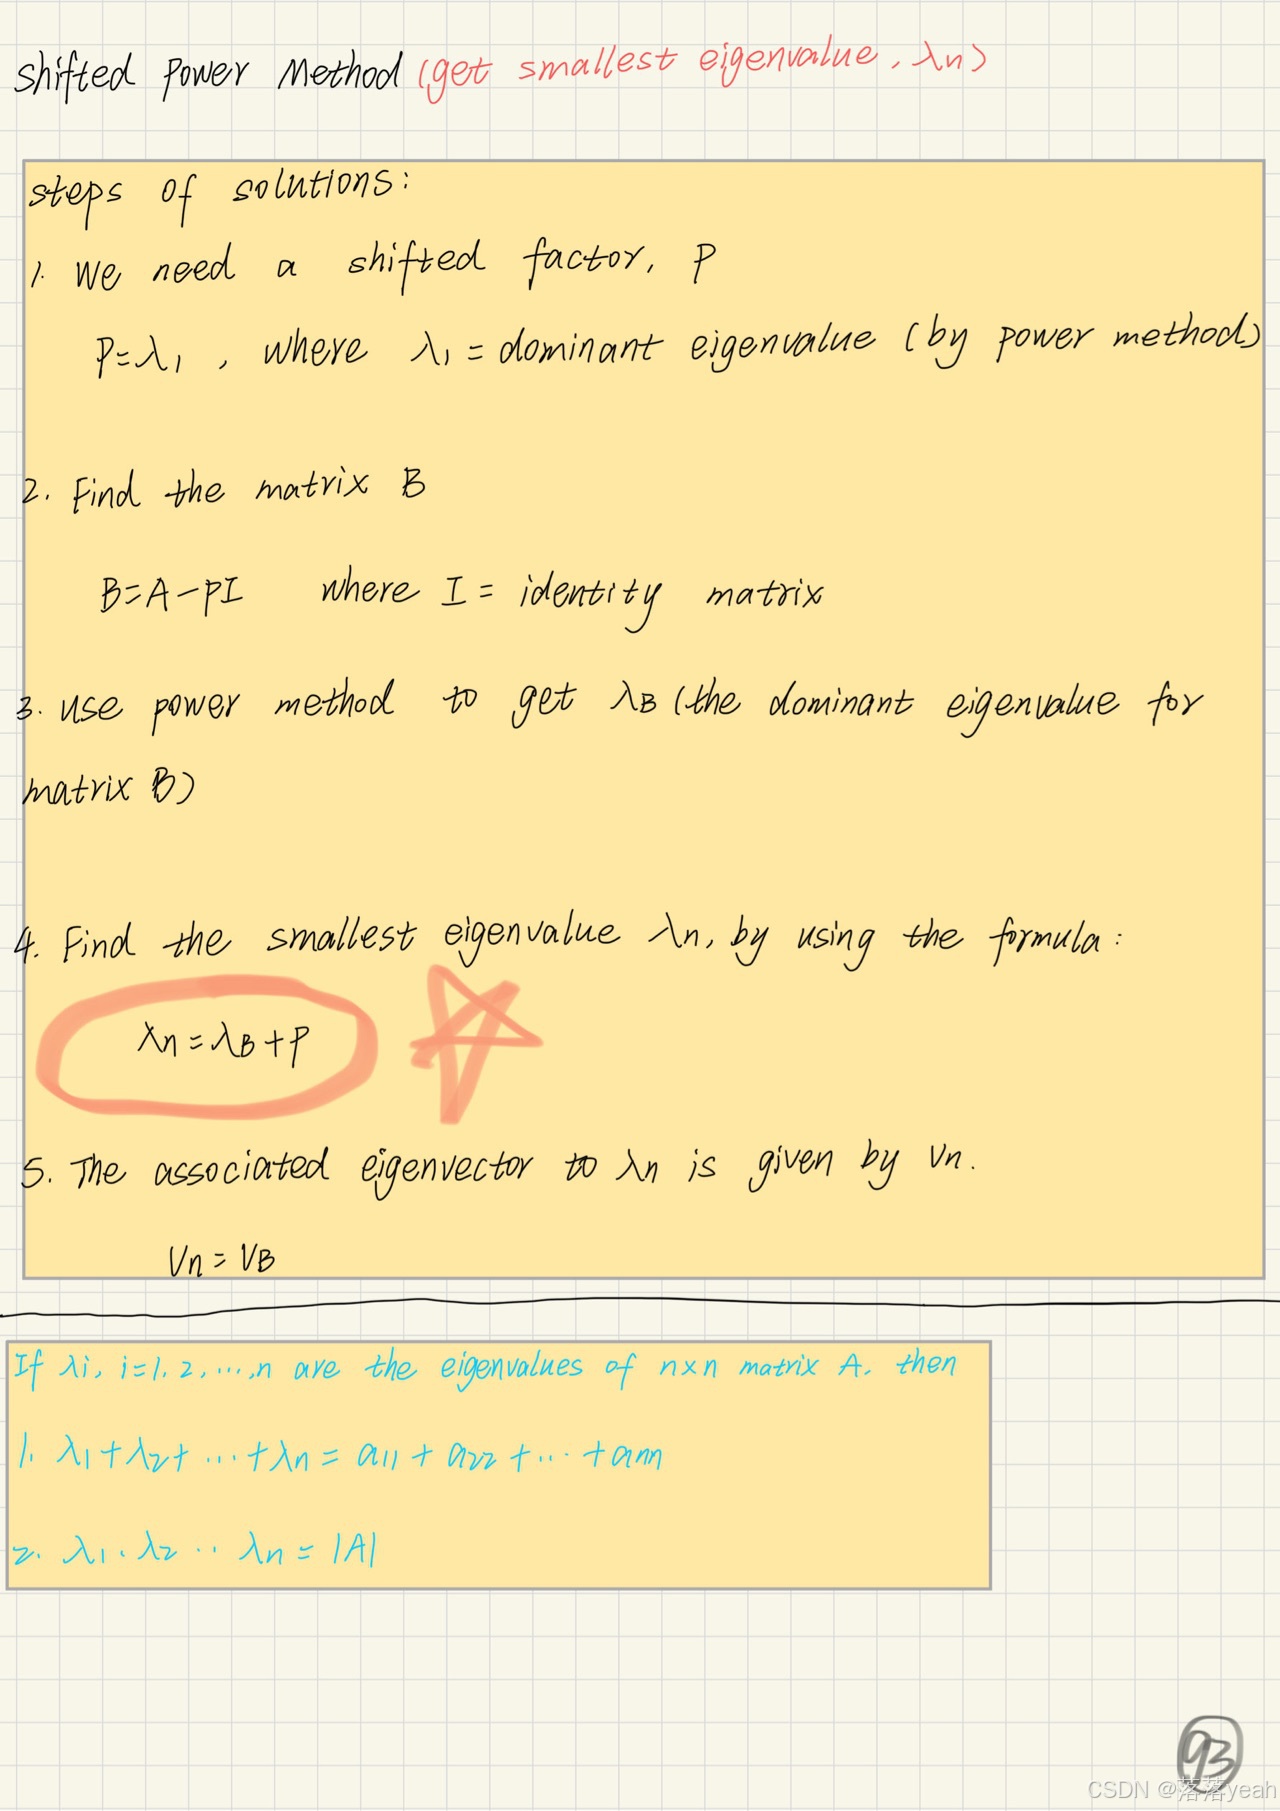 Shifted Power Method (get smallest eigenvalue, λn)
steps of solutions:
1. We need a shifted factor, P
P=λ1, where λ1 = dominant eigenvalue (by power method)
2. Find the matrix B
B=A-PI where I = identity matrix
3. Use power method to get λB (the dominant eigenvalue for
matrix B)
4. Find the smallest eigenvalue λn, by using the formula:
λn = λB + P
5. The associated eigenvector to λn is given by Vn.
Vn = VB
If λi, i=1, 2, ..., n are the eigenvalues of n×n matrix A, then
1. λ1+λ2+ ... +λn = a11 + a22 + ... + ann
2. λ1 . λ2 .. λn = |A|
93
CSDN @落落yeah